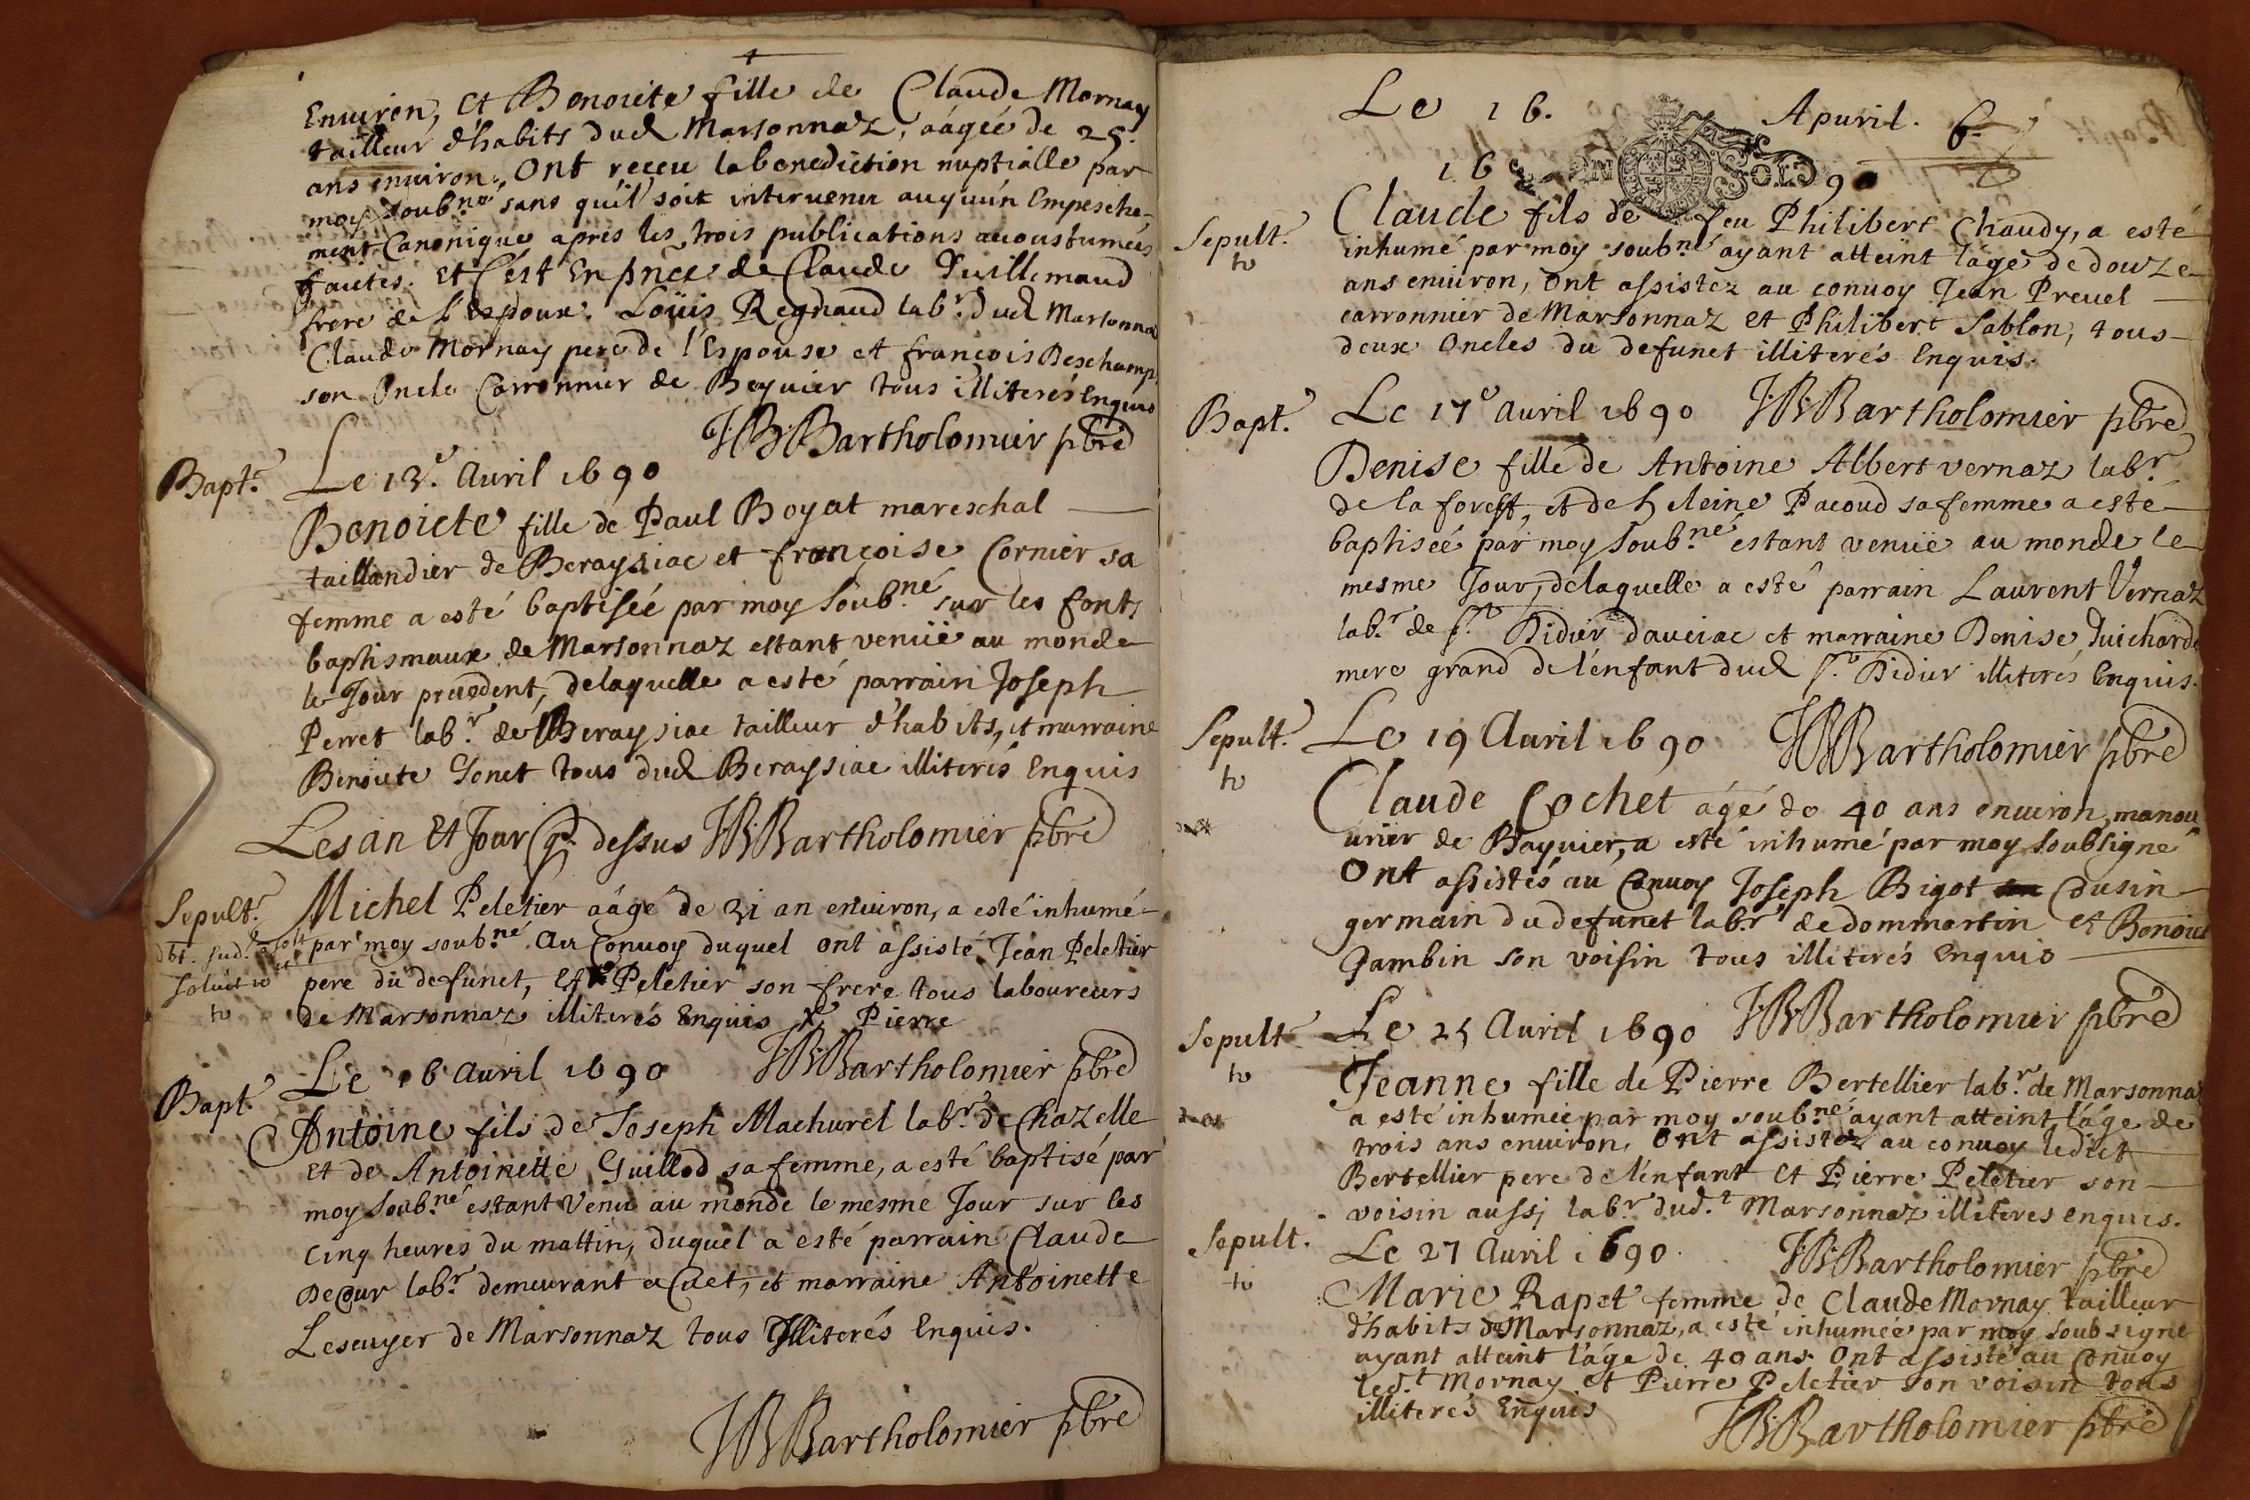 Enuiron, Et Benoicte fille de Claude Mornay
tailleur d'habits dud Marsonnaz, aágeé de 25
ans enuiron, Ont reçeu la benediction nuptialle par
moy soub.né sans qu'il soit interuenu auquun Empesche-
ment Canonique apres les trois publications accoustumeés
faites. Et C'est En pñce de Claude Vuillemaud
frere de l'Espoux. Loüis Regnaud lab.r dud Marsonna
Claude Mornay pere de l'Espouse et françois Deschamp
son Oncle Carronnier de Beyuier tous illiterés Enquis
JB Bartholomier pbre
Bapt. Le 13.e Auril 1690
Benoicte fille de Paul Boyat mareschal
taillandier de Beraysiac et françoise Cornier sa
femme a esté baptiseé par moy soub.né sur les fonts
baptismaux de Marsonnaz estant venuë au monde
le Jour precedent, delaquelle a esté parrain Joseph
Perret lab.r de Beraysiac tailleur d'habits, et marraine
Benoicte Gonet tous dud Beraysiac illiterés Enquis
Les an Et Jour q dessus JB Bartholomier pbre
Sepult. Michel Peletier aágé de 21 an enuiron, a esté inhumé
par moy soub.né. Au Conuoy duquel ont assisté Jean Peletier
pere du defunct, Et x Peletier son frere tous laboureurs
de Marsonnaz illiterés Enquis x Pierre
Le 16 Auril 1690 JB Bartholomier pbre
Bapt. Antoine fils de Joseph Machurel lab.r de Chazelle
et de Antoinette Guillod sa femme, a esté baptisé par
moy soub.né estant venu au monde le mesme Jour sur les
cinq heures du mattin, duquel a esté parrain Claude
Decour lab.r demeurant a Cuet, et marraine Antoinette
Lescuyer de Marsonnaz tous Illiterés Enquis.
JB Bartholomier pbre
Le 16. Apuril. 6.
16 90
Sepult. Claude fils de feu Philibert Chaudy, a esté
to inhumé par moy soub.né ayant atteint l'age de douze
ans enuiron, Ont assistez au conuoy Jean Preuel
carronnier de Marsonnaz et Philibert Sablon, tous
deux Oncles du defunct illiterés Enquis.
Bapt. Le 17e auril 1690 JB Bartholomier pbre
Denise fille de Antoine Albert vernaz lab.r
de la forest, et de heleine Pacoud sa femme a esté
baptiseé par moy soub.né estant venuë au monde le
mesme Jour, delaquelle a esté parrain Laurent Vernaz
lab.r de s.t Didier d'auciac et marraine Denise Guicharde
mere grand de l'enfant dud s.t Didier illiterés Enquis.
Sepult. Le 19 Auril 1690 JB Bartholomier pbre
to Claude Cochet ágé de 40 ans enuiron, manou
urier de Bayuier, a esté inhumé par moy soubsigné
Ont assistés au Conuoy Joseph Bigot Cousin
germain du defunct lab.r de dommartin et Benoict
Gambin son voisin tous illiterés Enquis
Sepult Le 25 Auril 1690 JB Bartholomier pbre
to Jeanne fille de Pierre Bertellier lab.r de Marsonna
a esté inhumeé par moy soub.né ayant atteint l'áge de
trois ans enuiron, Ont assistez au conuoy ledict
Bertellier pere de l'enfant Et Pierre Peletier son
voisin aussj lab.r dud.t Marsonnaz illiteres enquis.
Sepult. Le 27 Auril 1690. JB Bartholomier pbre
to Marie Rapet femme de Claude Mornay tailleur
d'habits de Marsonnaz, a esté inhumeé par moy soub signé
ayant atteint l'áge de 40 ans. Ont assisté au Conuoy
led.t Mornay et Pierre Peletier son voisin tous
illiterés Enquis
JB Bartholomier pbre